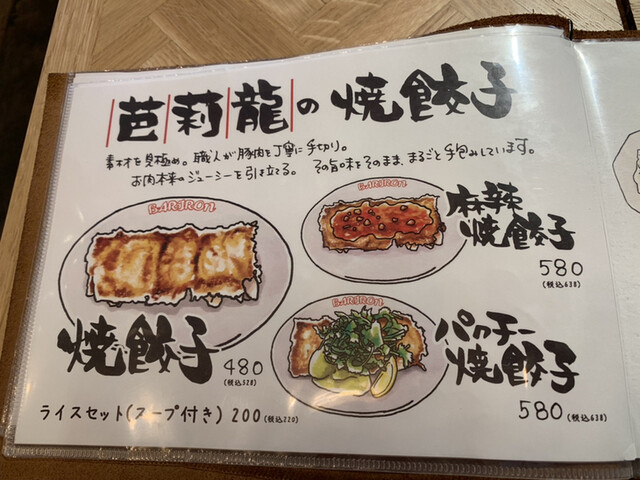 芭莉龍の焼餃子
素材を見極め。職人が豚肉を丁寧に手切り。
お肉本来のジューシーを引き立てる。 その旨味をそのまま、まるごと手包みしています。
BARIRON
麻辣
焼餃子
580
(税込638)
BARIRON
焼餃子 480
(税込528)
BARIRON
パクチー
焼餃子
580 (税込638)
ライスセット(スープ付き) 200 (税込220)